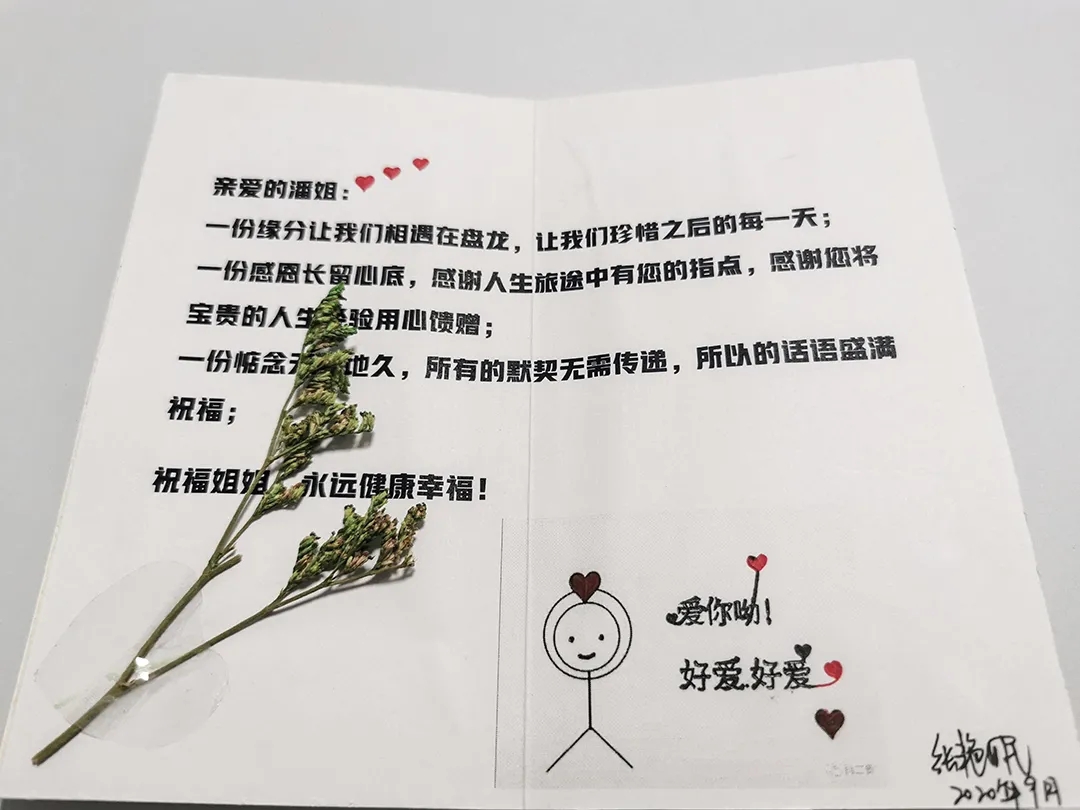 亲爱的潘姐：
一份缘分让我们相遇在盘龙，让我们珍惜之后的每一天；
一份感恩长留心底，感谢人生旅途中有您的指点，感谢您将
宝贵的人生经验用心馈赠；
一份惦念天长地久，所有的默契无需传递，所以的话语盛满
祝福；
祝福姐姐，永远健康幸福！
爱你呦！
好爱好爱
2020年9月